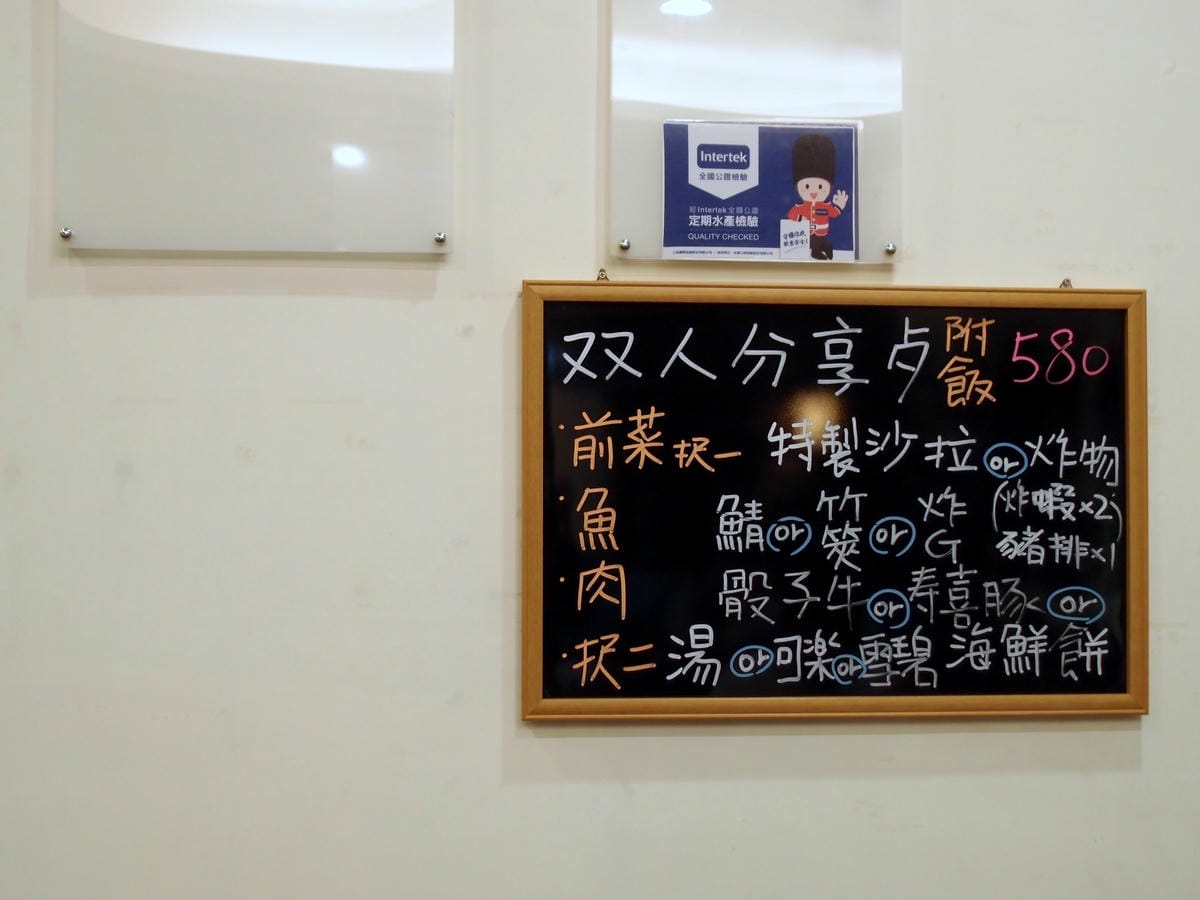 Intertek
全國公證檢驗
經Intertek全國公證
定期水產檢驗
QUALITY CHECKED
守護你我
飲食安全!
双人分享歺 附飯 580
·前菜 択一 特製沙拉 or 炸物
(炸蝦x2
豬排x1)
·魚 鯖 or 竹筴 or 炸G
·肉 骰子牛 or 寿喜豚く or
海鮮餅
·択二 湯 or 可楽 or 雪碧